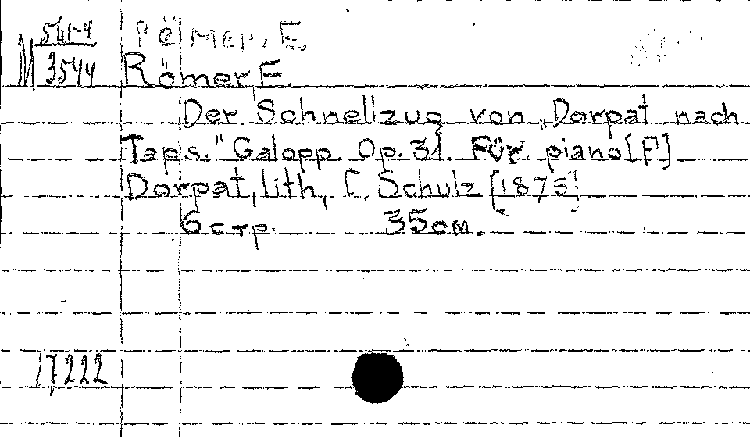 Рёмер, Е.
M 3544 Römer, E.
Der Schnellzug von „Dorpat nach
Taps." Galopp. Op. 31. Für piano [F]
Dorpat, lith. C. Schulz [1875]
6 стр. 35 см.
17,222